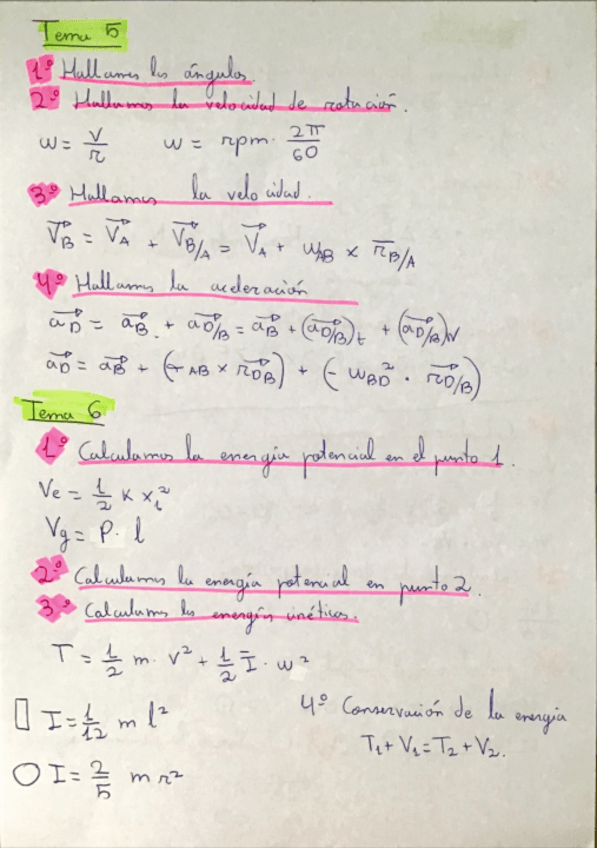 Tema 5
1º Hallamos los ángulos.
2º Hallamos la velocidad de rotación.
ω = v/r    ω = rpm · 2π/60
3º Hallamos la velocidad.
V⃗_B = V⃗_A + V⃗_B/A = V⃗_A + ω_AB × r̅_B/A
4º Hallamos la aceleración
a⃗_D = a⃗_B + a⃗_D/B = a⃗_B + (a⃗_D/B)_t + (a⃗_D/B)_N
a⃗_D = a⃗_B + (α_AB × r⃗_DB) + (- ω_BD² · r⃗_D/B)
Tema 6
1º Calculamos la energía potencial en el punto 1.
Ve = 1/2 K x₁²
Vg = P · l
2º Calculamos la energía potencial en punto 2.
3º Calculamos las energías cinéticas.
T = 1/2 m · v² + 1/2 I̅ · ω²
I = 1/12 m l²
4º Conservación de la energía
T₁ + V₁ = T₂ + V₂.
I = 2/5 m r²